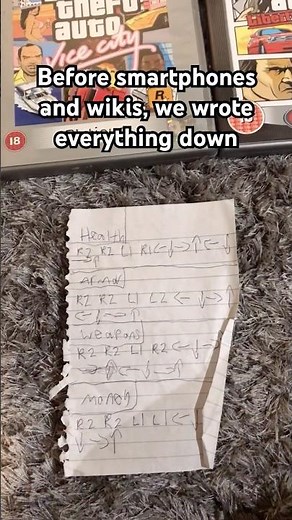 theft
auto
Vice City
18
Before smartphones
and wikis, we wrote
everything down
Health
R2 R2 L1 R1 ← ↓ → ↑ ← ↓
→ ↑
Armor
R2 R2 L1 L2 ← ↓ → ↑
← ↓ → ↑
Weapons
R2 R2 L1 R2 ← ↓ → ↑
← ↓ → ↑
Money
R2 R2 L1 L1 ← ↓
→ ↑